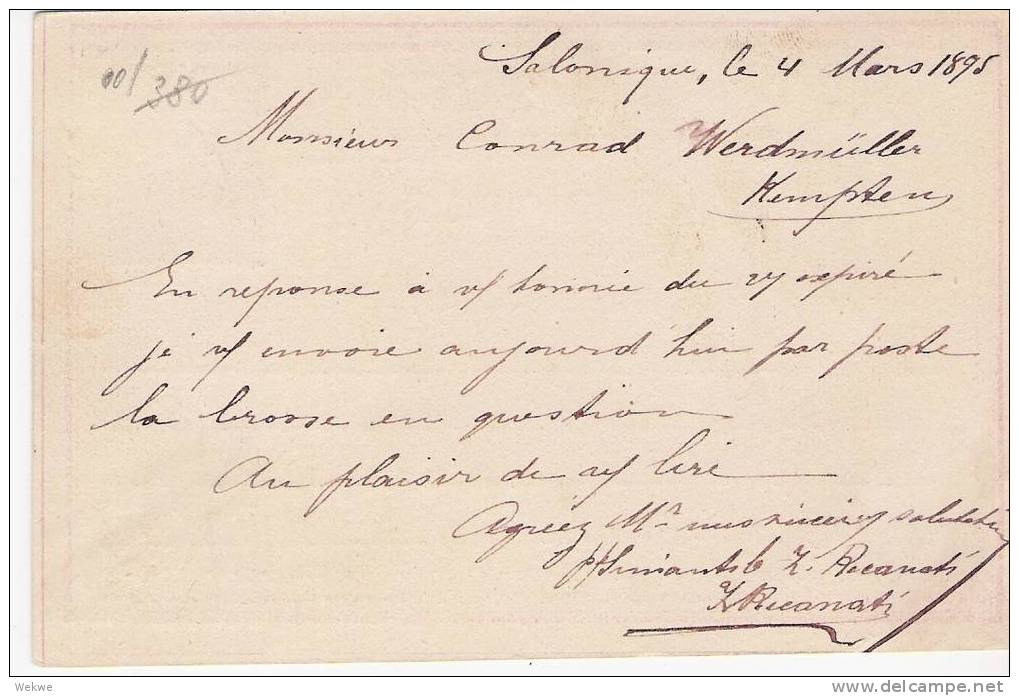 Salonique, le 4 Mars 1895
00/ 380
Monsieur Conrad Werdmüller
Kempten
En reponse à v/ honrée du 27 expiré
je v/ envoie aujourd'hui par poste
la brosse en question
Au plaisir de v/ lire
Agréez Mr nos sincères salutations
Z. Recanati
Z Recanati
Wekwe
delcampe.net